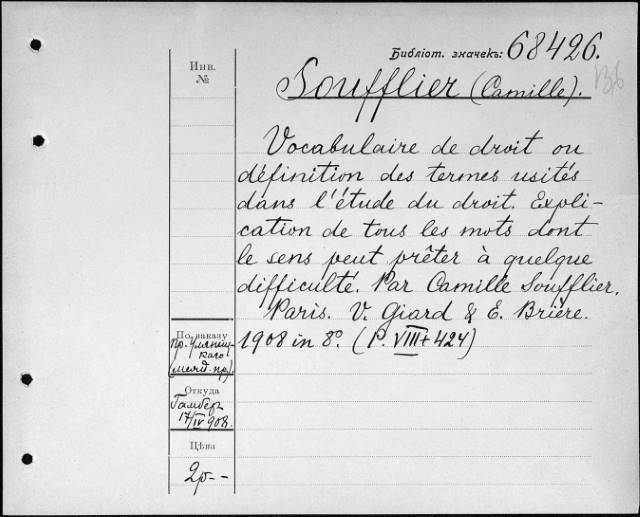 Библіот. значекъ: 68426.
Инв.
№
Soufflier (Camille).
Vocabulaire de droit ou
définition des termes usités
dans l'étude du droit. Expli-
cation de tous les mots dont
le sens peut prêter à quelque
difficulté. Par Camille Soufflier.
Paris. V. Giard & E. Brière.
1908 in 8º. (P. VIII+424)
По заказу
Пр.
Откуда
17/IV 908.
Цѣна
2р--